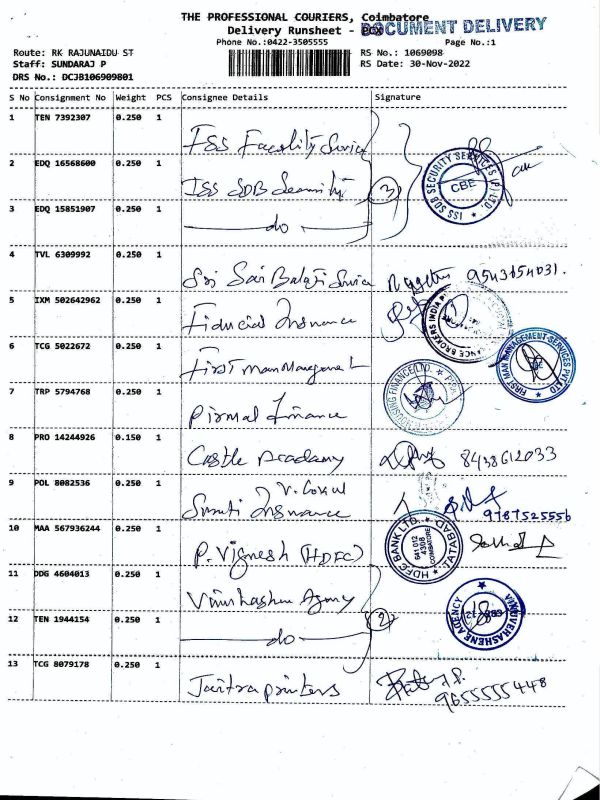 THE PROFESSIONAL COURIERS, Coimbatore
Delivery Runsheet - DOX
DOCUMENT DELIVERY
Phone No.:0422-3505555 Page No.:1
Route: RK RAJUNAIDU ST RS No.: 1069098
Staff: SUNDARAJ P RS Date: 30-Nov-2022
DRS No.: DCJB106909801
S No Consignment No Weight PCS Consignee Details Signature
1 TEN 7392307 0.250 1
ISS Facility
2 EDQ 16568600 0.250 1
ISS SDB Security 3
ISS SDB SECURITY SERVICES (P) LTD. CBE
3 EDQ 15851907 0.250 1
do
4 TVL 6309992 0.250 1
Sri Sai Balaji 9543154031.
5 IXM 502642962 0.250 1
Fiducial Insurance
BROKERS INDIA
6 TCG 5022672 0.250 1
First man
FIRST MAN MANAGEMENT SERVICES PVT LTD
7 TRP 5794768 0.250 1
Pirmal Finance
HOUSING FINANCE LTD.
8 PRO 14244926 0.150 1
Castle Academy 8438612033
9 POL 8082536 0.250 1
Insurance 9787525556
10 MAA 567936244 0.250 1
P. Vignesh (HDFC)
HDFC BANK LTD. TATABAD
641 012
4308
COIMBATORE
11 DDG 4604013 0.250 1
Agency
VINOVERASHENE AGENCY
12 TEN 1944154 0.250 1
do 2
13 TCG 8079178 0.250 1
printers
9655555448